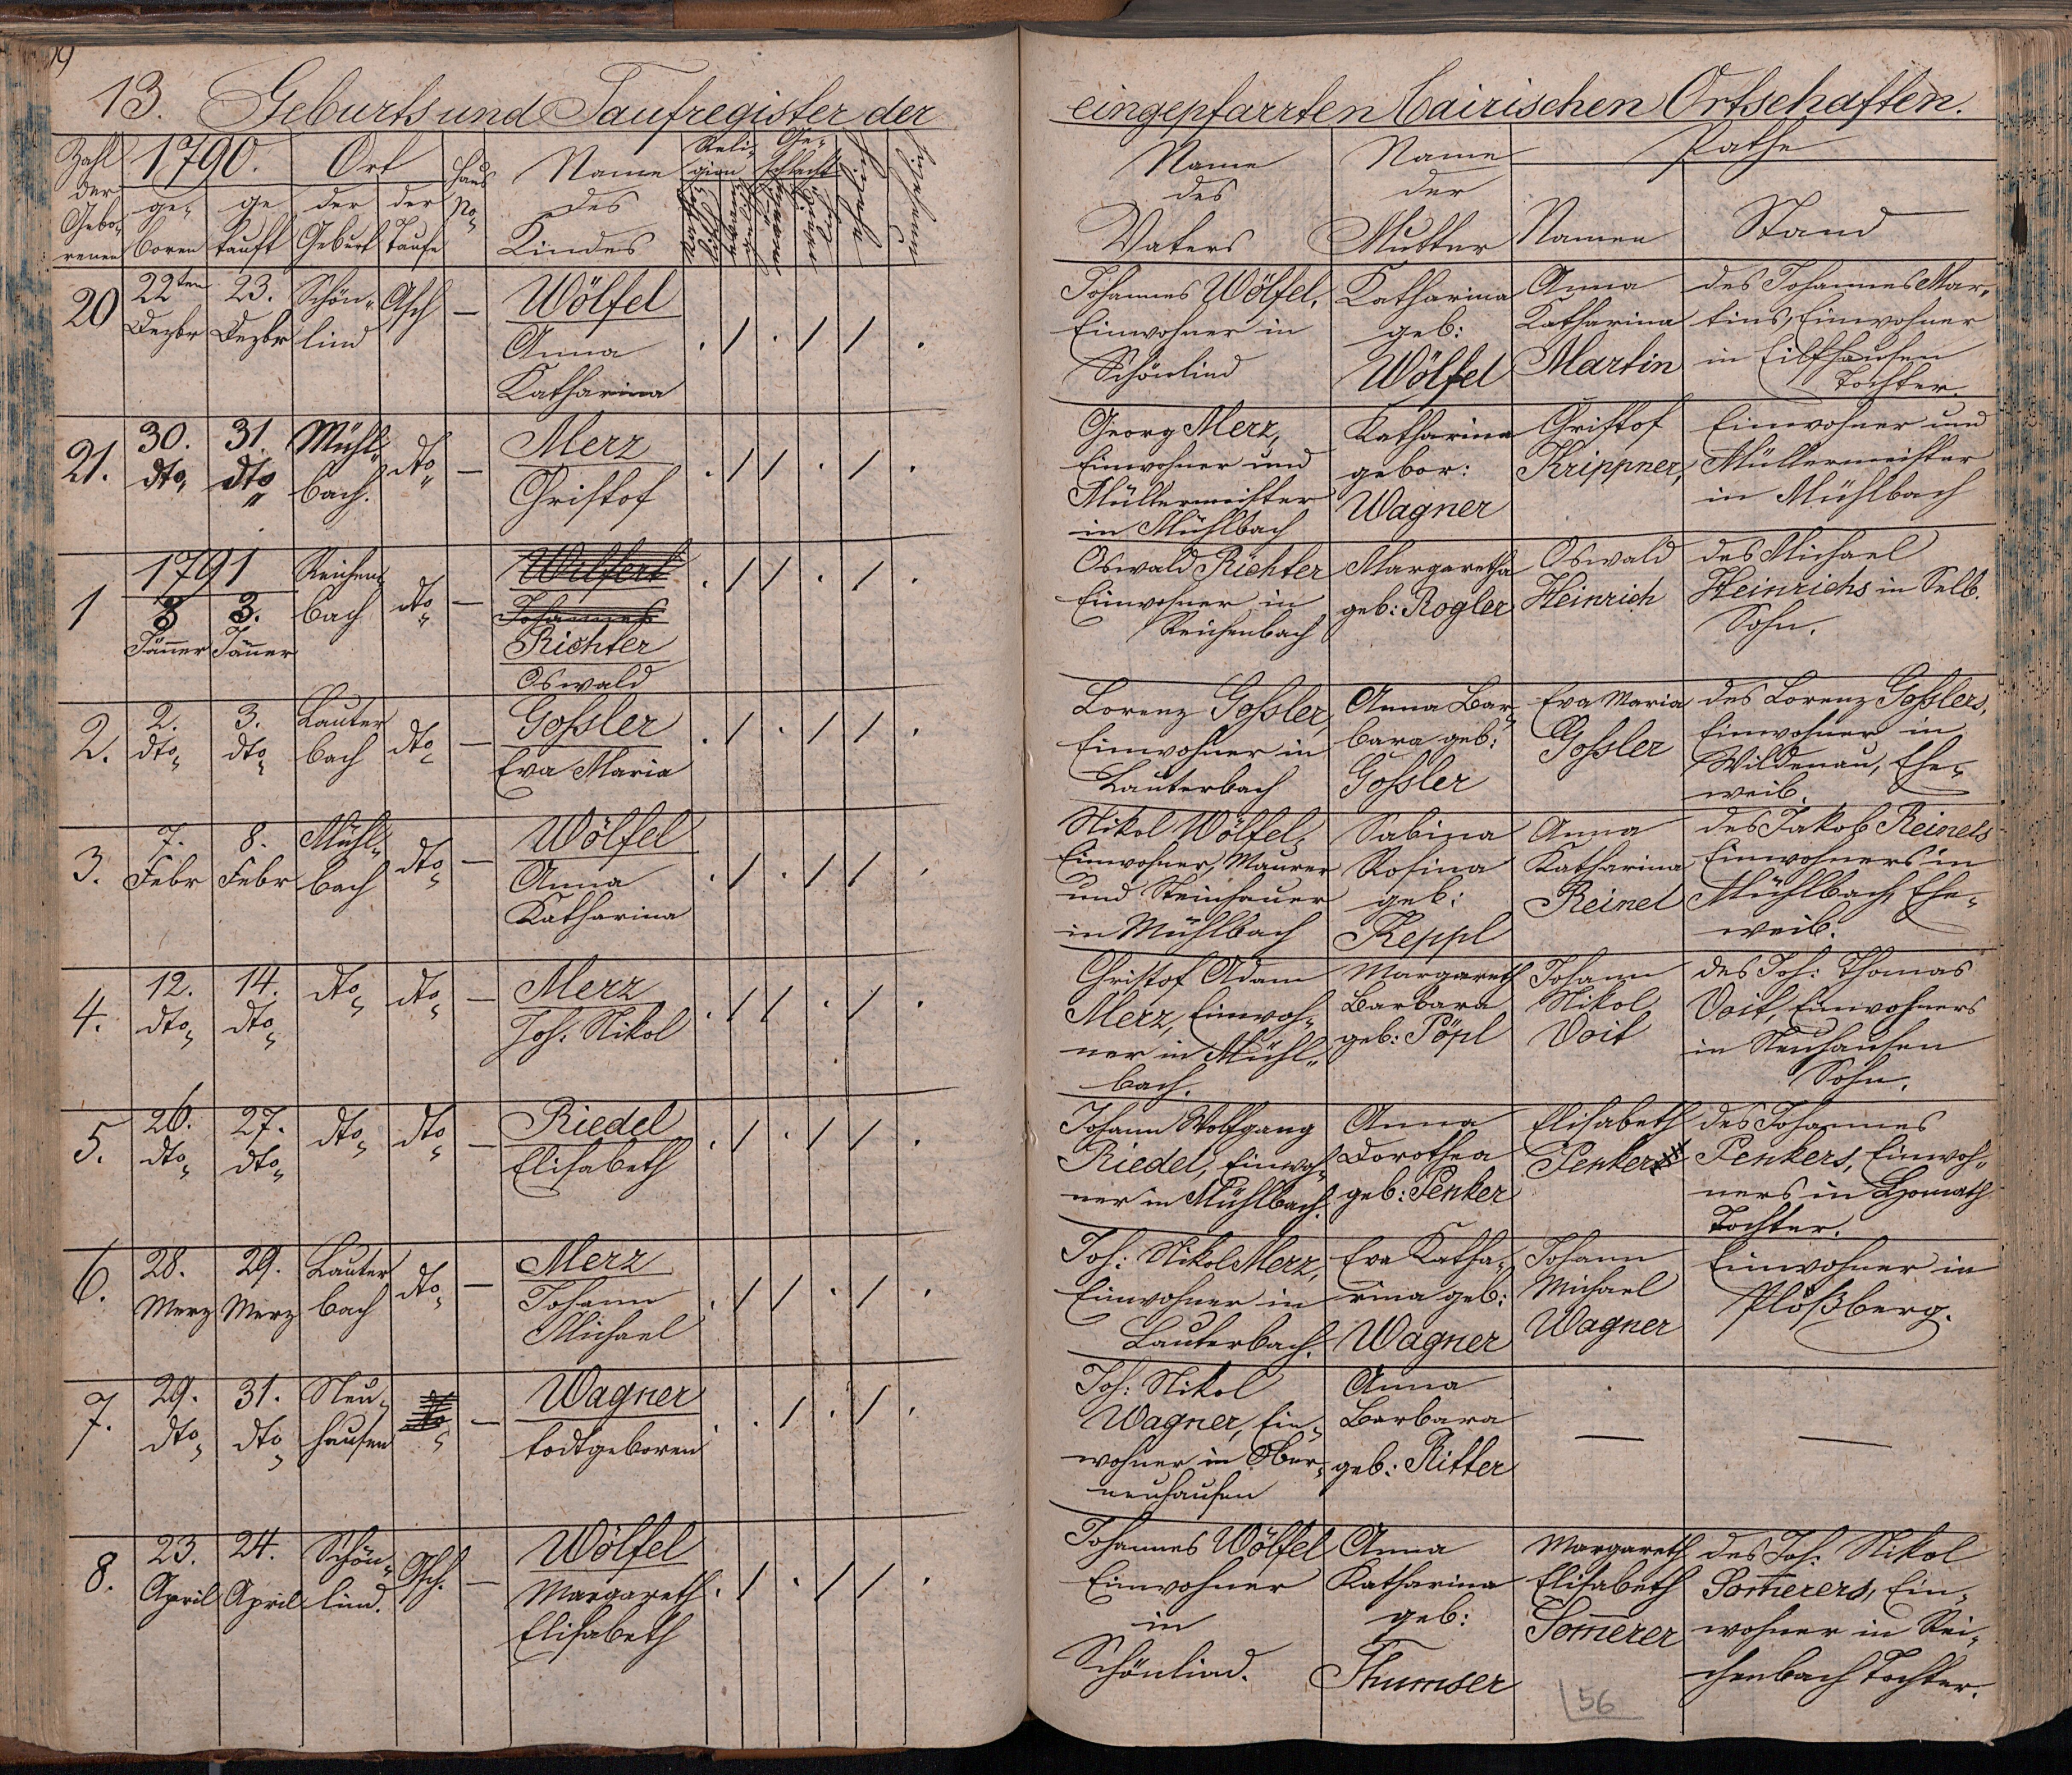 13. Geburts und Taufregister der
eingepfarrten bairischen Ortschaften.
Zahl der Gebo- renen
1790.
ge- boren
ge tauft
Ort
der Geburt
der Taufe
Haus No
Name des Kindes
Reli- gion
Ge- schlecht
Name des Vaters
Name der Mutter
Pathe
Namen
Stand
20
22ten Dezbr
23. Dezbr
Schön- lind
Asch
—
Wölfel
Anna
Katharina
. / . / / .
Johannes Wölfel,
Einwohner in
Schönlind
Katharina
geb:
Wölfel
Anna
Katharina
Martin
des Johannes Mar-
tins, Einwohner
in
Tochter.
21.
30. dto
31. dto
Mühl- bach.
dto
—
Merz
Christof
. / / . / .
Georg Merz,
Einwohner und
Müllermeister
in Mühlbach
Katharina
gebor:
Wagner
Christof
Krippner,
Einwohner und
Müllermeister
in Mühlbach
1791
1
3 Jänner
3. Jänner
Reichen- bach
dto
—
Wilfert
Johannes
Richter
Oswald
. / / . / .
Oswald Richter
Einwohner in
Reichenbach
Margaretha
geb: Rogler
Oswald
Heinrich
des Michael
Heinrichs in Selb.
Sohn.
2.
2. dto
3. dto
Lauter bach
dto
—
Goßler
Eva Maria
. / . / / .
Lorenz Goßler,
Einwohner in
Lauterbach
Anna Bar-
bara geb:
Goßler
Eva Maria
Goßler
des Lorenz Goßlers,
Einwohner in
Wildenau, Ehe-
weib.
3.
7. Febr
8. Febr
Mühl- bach
dto
—
Wölfel
Anna
Katharina
. / . / / .
Nikol Wölfel,
Einwohner, Maurer
und Steinhauer
in Mühlbach
Sabina
Rosina
geb:
Keppl
Anna
Katharina
Reinel
des Jakob Reinels
Einwohners in
Mühlbach, Ehe-
weib.
4.
12. dto
14. dto
dto
dto
—
Merz
Joh: Nikol
. / / . / .
Christof Adam
Merz, Einwoh-
ner in Mühl-
bach.
Margareth
Barbara
geb: Pöpl
Johann
Nikol
Voit
des Joh: Thomas
Voit, Einwohners
in Neuhausen
Sohn.
5.
26. dto
27. dto
dto
dto
—
Riedel
Elisabeth
. / . / / .
Johann Wolfgang
Riedel, Einwoh-
ner in Mühlbach.
Anna
Dorothea
geb: Penker
Elisabeth
Penker
des Johannes
Penkers, Einwoh-
ners in
Tochter.
6.
28. Merz
29. Merz
Lauter bach
dto
—
Merz
Johann
Michael
. / / . / .
Joh: Nikol Merz,
Einwohner in
Lauterbach.
Eva Katha-
rina geb:
Wagner
Johann
Michael
Wagner
Einwohner in
Plößberg.
7.
29. dto
31. dto
Neu- hausen
dto
—
Wagner
todtgeboren
. . / . / .
Joh: Nikol
Wagner, Ein-
wohner in Ober-
neuhausen
Anna
Barbara
geb: Ritter
—
—
8.
23. April
24. April
Schön- lind.
Asch.
—
Wölfel
Margareth
Elisabeth
. / . / / .
Johannes Wölfel
Einwohner
in
Schönlind.
Anna
Katharina
geb:
Thumser
Margareth
Elisabeth
Som̄erer
des Joh: Nikol
Som̄erers, Ein-
wohner in Rei-
chenbach Tochter.
56